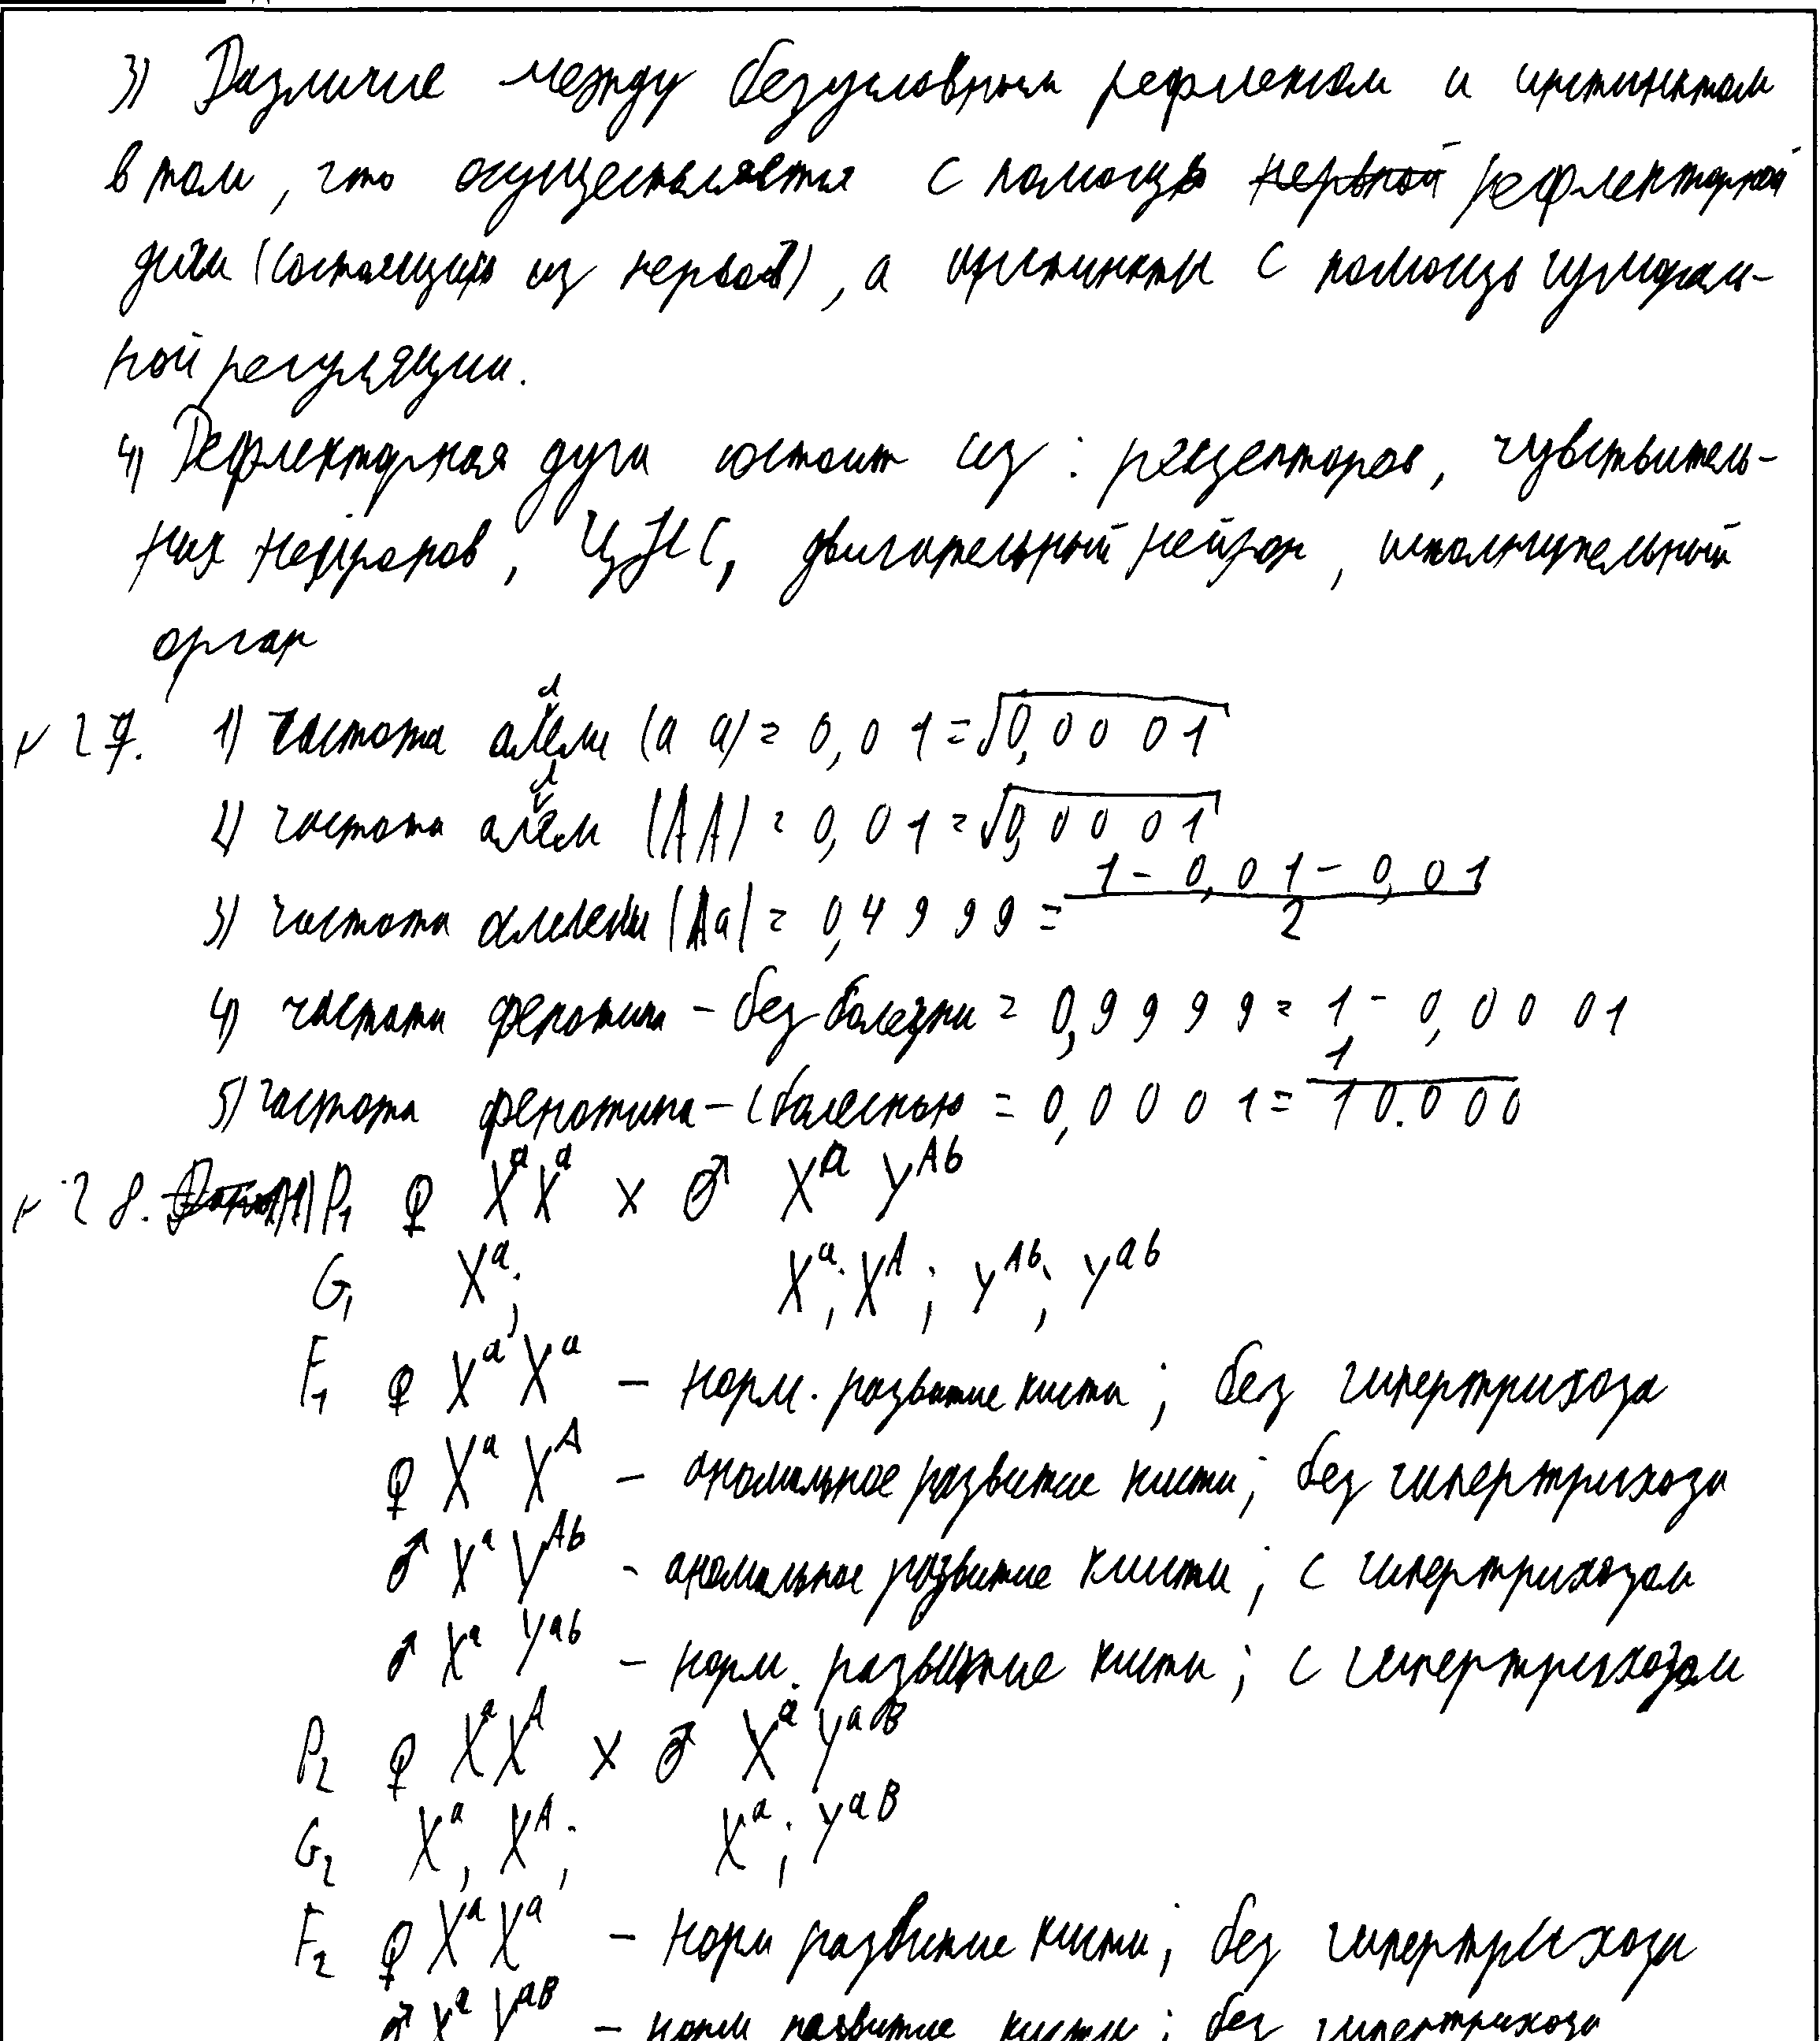 3) Различие между безусловным рефлексом и инстинктом
в том, что осуществляется с помощь нервной рефлекторной
дуги (состоящих из нервов), а инстинкты с помощь гумораль-
ной регуляции.
4) Рефлекторная дуга состоит из: рецепторов, чувствитель-
ных нейронов, ЦНС, двигательный нейрон, исполнительный
орган
№ 27. 1) частота аллели (a a) = 0,01 = √0,0001
2) частота аллели (AA) = 0,01 = √0,0001
3) частота аллели (Aa) = 0,4999 = (1 - 0,01 - 0,01)/2
4) частота фенотипа - без болезни = 0,9999 = 1 - 0,0001
5) частота фенотипа - с болезнью = 0,0001 = 1/10.000
№ 28. 1) P₁ ♀ XᵃXᵃ x ♂ Xᵃ Yᴬᵇ
G₁ Xᵃ; Xᵃ; Xᴬ; Yᴬᵇ; Yᵃᵇ
F₁ ♀ XᵃXᵃ - норм. развитие кисти; без гипертрихоза
♀ XᵃXᴬ - аномальное развитие кисти; без гипертрихоза
♂ XᵃYᴬᵇ - аномальное развитие кисти; с гипертрихозом
♂ Xᵃ Yᵃᵇ - норм. развитие кисти; с гипертрихозом
P₂ ♀ XᵃXᴬ x ♂ XᵃYᵃᴮ
G₂ Xᵃ, Xᴬ; Xᵃ; Yᵃᴮ
F₂ ♀ XᵃXᵃ - норм развитие кисти; без гипертрихоза
♂ XᵃYᵃᴮ - норм развитие кисти; без гипертрихоза